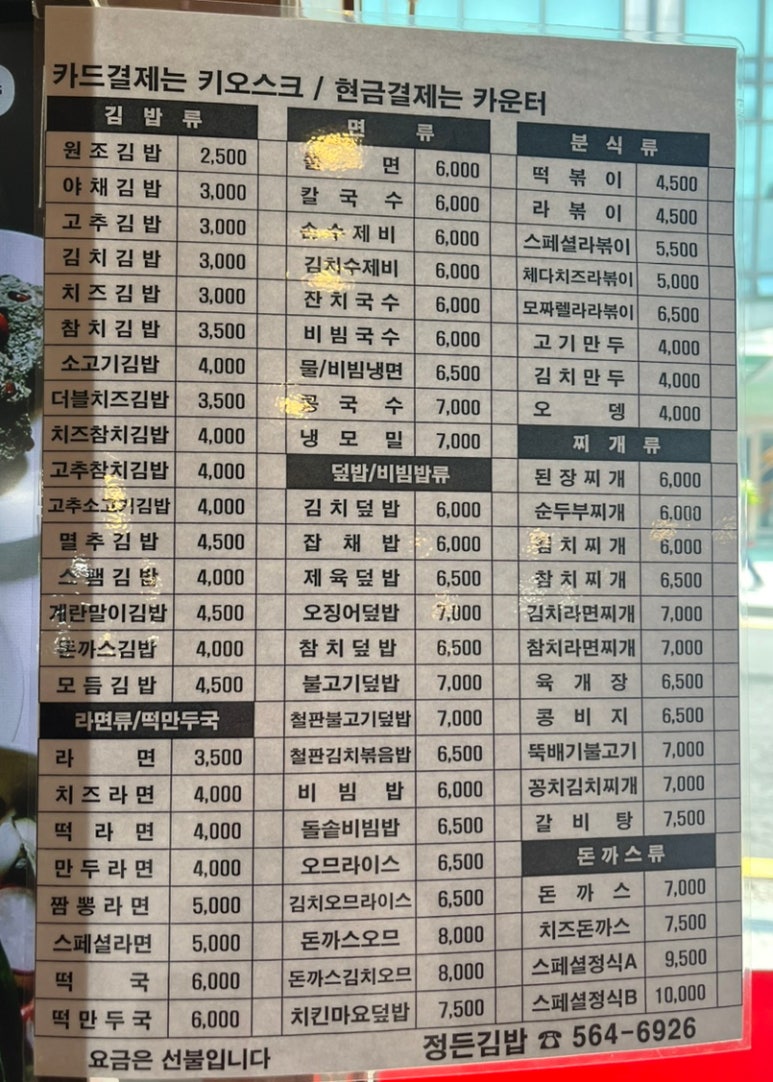 카드결제는 키오스크 / 현금결제는 카운터
김밥류
원조김밥 2,500
야채김밥 3,000
고추김밥 3,000
김치김밥 3,000
치즈김밥 3,000
참치김밥 3,500
소고기김밥 4,000
더블치즈김밥 3,500
치즈참치김밥 4,000
고추참치김밥 4,000
고추소고기김밥 4,000
멸추김밥 4,500
스팸김밥 4,000
계란말이김밥 4,500
돈까스김밥 4,000
모듬김밥 4,500
라면류/떡만두국
라면 3,500
치즈라면 4,000
떡라면 4,000
만두라면 4,000
짬뽕라면 5,000
스페셜라면 5,000
떡국 6,000
떡만두국 6,000
면류
면 6,000
칼국수 6,000
손수제비 6,000
김치수제비 6,000
잔치국수 6,000
비빔국수 6,000
물/비빔냉면 6,500
콩국수 7,000
냉모밀 7,000
덮밥/비빔밥류
김치덮밥 6,000
잡채밥 6,000
제육덮밥 6,500
오징어덮밥 7,000
참치덮밥 6,500
불고기덮밥 7,000
철판불고기덮밥 7,000
철판김치볶음밥 6,500
비빔밥 6,000
돌솥비빔밥 6,500
오므라이스 6,500
김치오므라이스 6,500
돈까스오므 8,000
돈까스김치오므 8,000
치킨마요덮밥 7,500
분식류
떡볶이 4,500
라볶이 4,500
스페셜라볶이 5,500
체다치즈라볶이 5,000
모짜렐라라볶이 6,500
고기만두 4,000
김치만두 4,000
오뎅 4,000
찌개류
된장찌개 6,000
순두부찌개 6,000
김치찌개 6,000
참치찌개 6,500
김치라면찌개 7,000
참치라면찌개 7,000
육개장 6,500
콩비지 6,500
뚝배기불고기 7,000
꽁치김치찌개 7,000
갈비탕 7,500
돈까스류
돈까스 7,000
치즈돈까스 7,500
스페셜정식A 9,500
스페셜정식B 10,000
요금은 선불입니다
정든김밥 ☎ 564-6926